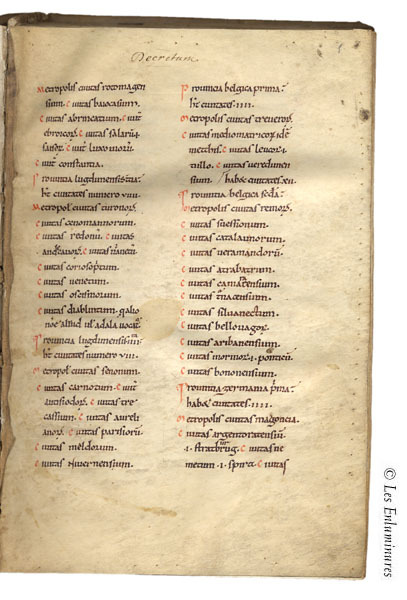 Decretum
Metropolis ciuitas rotomagen
sium. Ciuitas baiocasium.
Ciuitas abrincatium. Ciuit
ebroicoꝝ. Ciuitas salarii.i.
saiꝰ. Ciuit luxouioꝝ.
Ciuit constantia.
Prouincia lugdunensis tertia
hꝫ ciuitates numero viii.
Metropol ciuitas turonoꝝ.
Ciuitas cenomannorum.
Ciuitas redonū. Ciuitas
andegauoꝝ. Ciuitas nānetū.
Ciuitas coriosopitum.
Ciuitas uenetum.
Ciuitas ossismorum.
Ciuitas diablintum. q̄ alio
noīe aliud ul adala uocat͛.
Prouincia lugdunensis
hꝫ ciuitates numero viii.
Metropol ciuitas senonum.
Ciuitas carnotum. Ciuit
autisiodoꝝ. Ciuitas tre
cassium. Ciuitas aureli
anoꝝ. Ciuitas parisiorū
Ciuitas meldorum.
Ciuitas niuernensium.
Prouincia belgica prima
hꝫ ciuitates .iiii.
Metropolis ciuitas treueroꝝ.
Ciuitas mediomatricoꝝ idē
mettis. Ciuitas leucoꝝ.i.
tullo. Ciuitas ueredunen
sium. habet ciuitates .xii.
Prouincia belgica sedā
Metropolis ciuitas remoꝝ.
Ciuitas suessionum.
Ciuitas catalaunorum.
Ciuitas ueramandorū.
Ciuitas atrabatum.
Ciuitas camacensium.
Ciuitas tornacensium.
Ciuitas siluanectum.
Ciuitas bellouagoꝝ.
Ciuitas ambanensium.
Ciuitas morinoꝝ .i. ponticū.
Ciuitas bononensium.
Prouintia germania prima
habet ciuitates .iiii.
Metropolis ciuitas magoncia.
Ciuitas argentoratensiū
.i. stratburg. Ciuitas ne
metum .i. spira. Ciuitas
© Les Enluminures